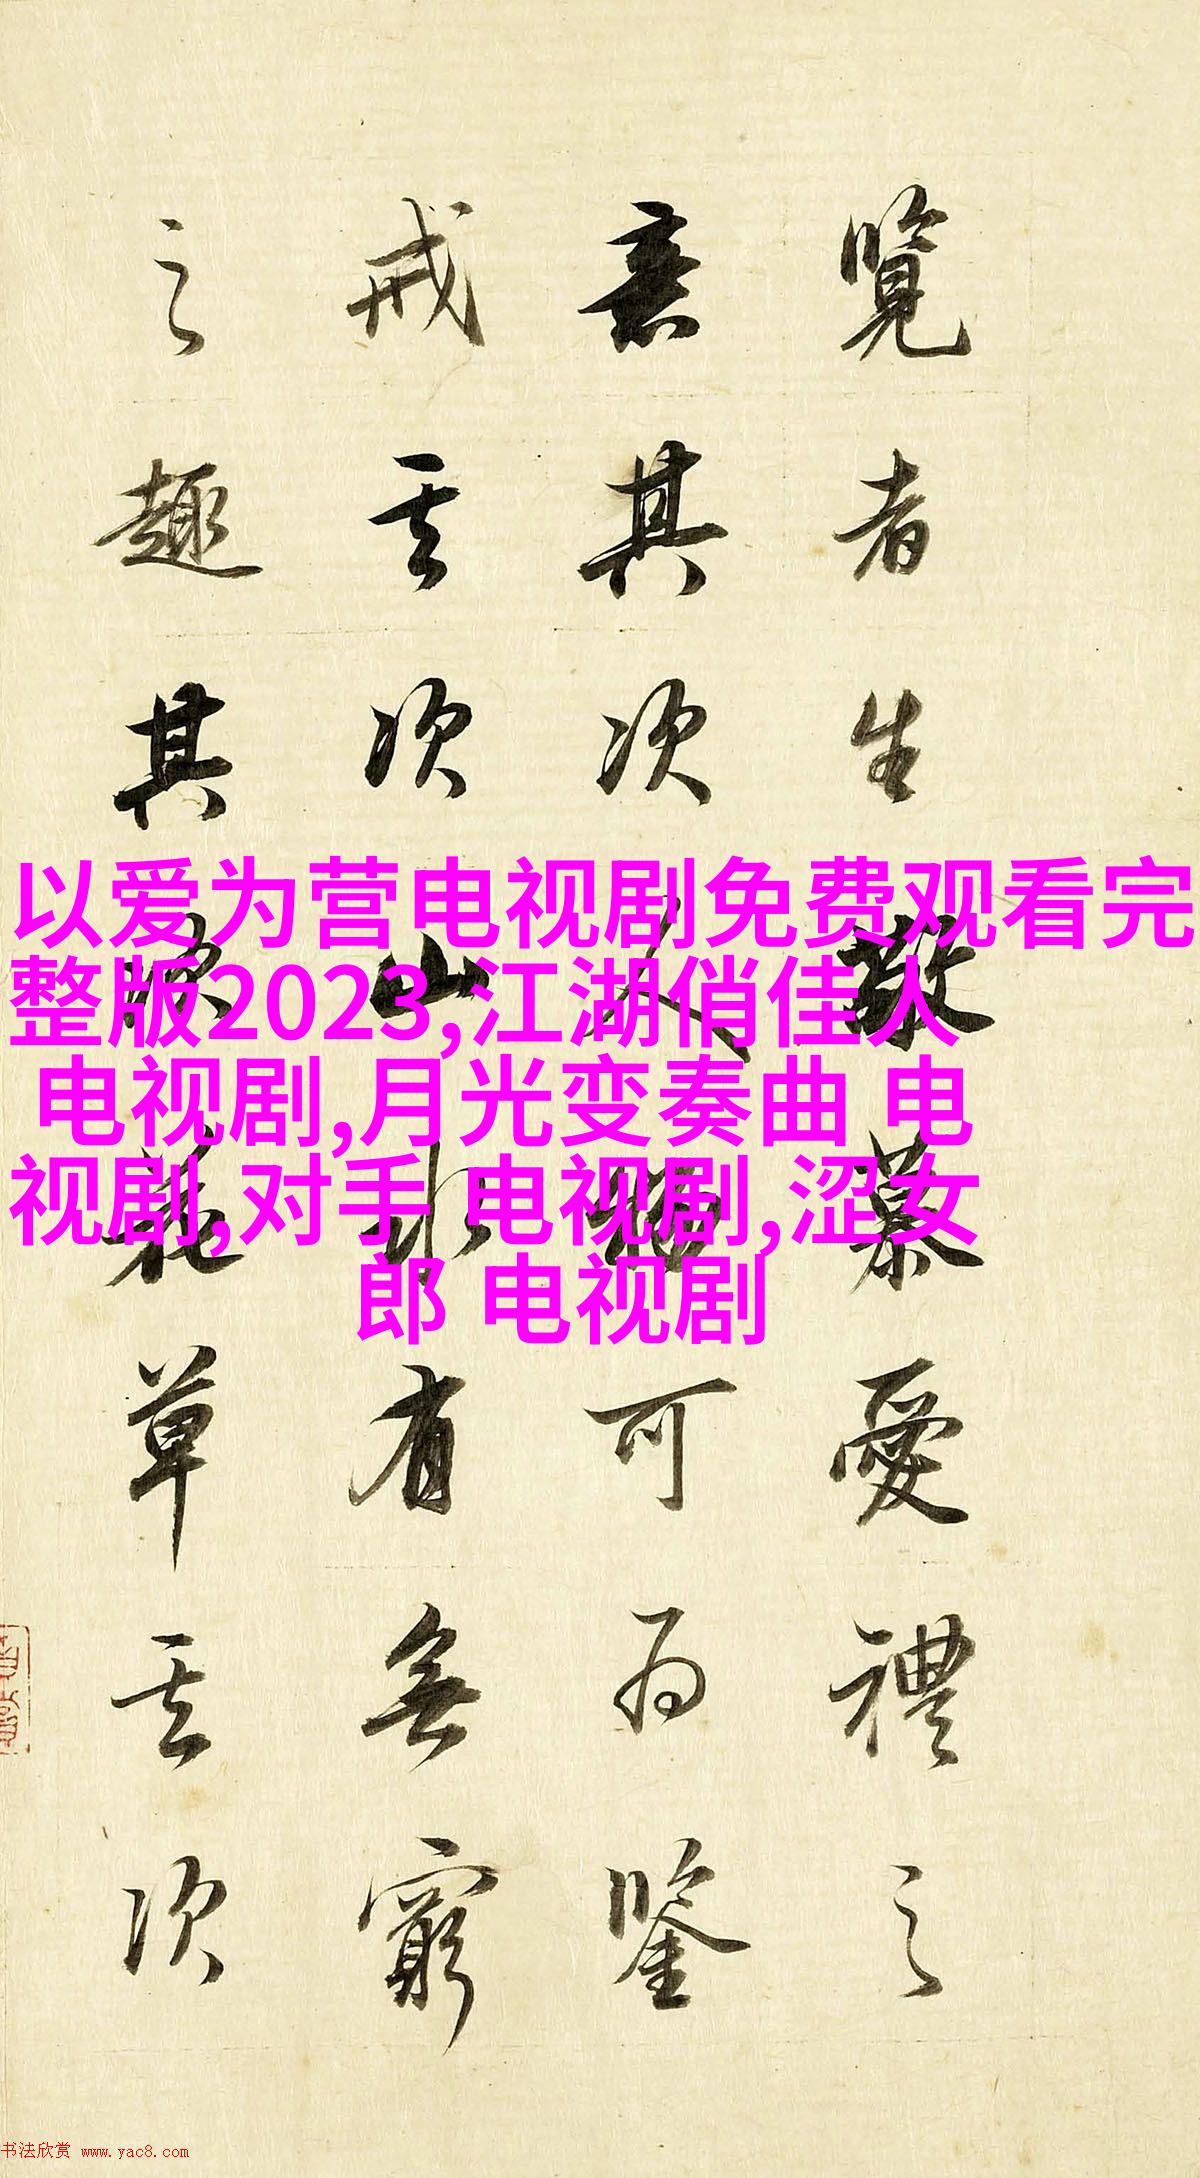 覽者生敬慕愛禮之
意其次人可為鑒
戒其次山水有無窮
之趣其次花草其次
以爱为营电视剧免费观看完
整版2023,江湖俏佳人
电视剧,月光变奏曲 电
视剧,对手 电视剧,涩女
郎 电视剧
书法欣赏 www.yac8.com